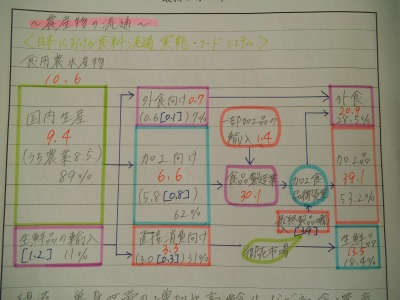 〜農産物の流通〜
<日本における食料流通実態・フードシステム>
食用農水産物
10.6
国内生産
9.4
(うち農業8.5)
89%
生鮮品の輸入
[1.2] 11%
外食向け0.7
(0.6[0.1])7%
加工向け
6.6
(5.8[0.8])
62%
直接消費向け
3.3
(3.0[0.3])31%
一部加工品の
輸入1.4
食品製造業
30.1
加工食
品卸売業
最終製品の輸
入[3.9]
卸売市場
外食
20.9
28.5%
加工品
39.1
53.2%
生鮮品
13.5
18.4%